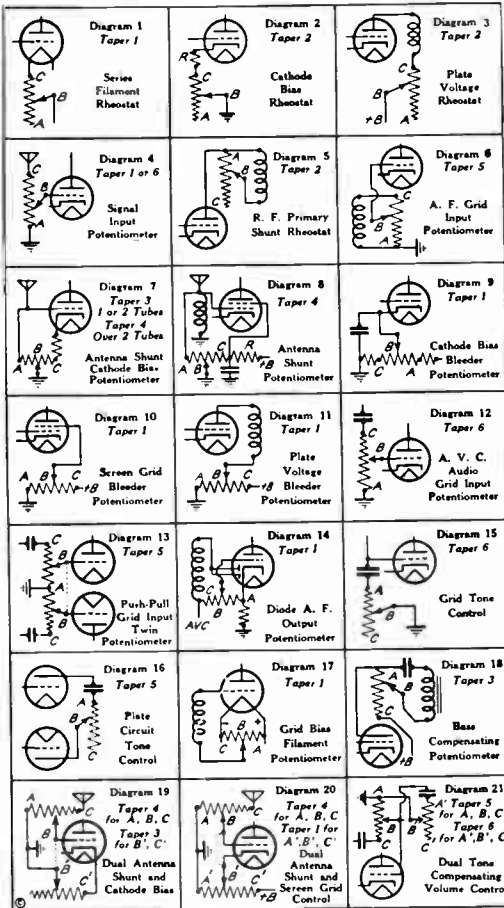 Diagram 1
Taper 1
C
B
A
Series
Filament
Rheostat
Diagram 2
Taper 2
R
C
B
A
Cathode
Bias
Rheostat
Diagram 3
Taper 2
C
B
A
+B
Plate
Voltage
Rheostat
Diagram 4
Taper 1 or 6
C
B
A
Signal
Input
Potentiometer
Diagram 5
Taper 2
A
B
C
R. F. Primary
Shunt Rheostat
Diagram 6
Taper 5
C
B
A
A. F. Grid
Input
Potentiometer
Diagram 7
Taper 3
1 or 2 Tubes
Taper 4
Over 2 Tubes
A
B
C
Antenna Shunt
Cathode Bias
Potentiometer
Diagram 8
Taper 4
A
B
C
R
+B
Antenna
Shunt
Potentiometer
Diagram 9
Taper 1
C
B
A
Cathode Bias
Bleeder
Potentiometer
Diagram 10
Taper 1
A
B
C
+B
Screen Grid
Bleeder
Potentiometer
Diagram 11
Taper 1
A
B
C
+B
Plate
Voltage
Bleeder
Potentiometer
Diagram 12
Taper 6
C
B
A
A. V. C.
Audio
Grid Input
Potentiometer
Diagram 13
Taper 5
C
B
A
B
C
Push-Pull
Grid Input
Twin
Potentiometer
Diagram 14
Taper 1
C
B
A
AVC
Diode A. F.
Output
Potentiometer
Diagram 15
Taper 6
A
B
C
Grid Tone
Control
Diagram 16
Taper 5
A
B
C
Plate
Circuit
Tone
Control
Diagram 17
Taper 1
C
- +
B
A
Grid Bias
Filament
Potentiometer
Diagram 18
Taper 3
A
B
C
+B
Bass
Compensating
Potentiometer
Diagram 19
Taper 4
for A, B, C
Taper 3
for B', C'
A
C
B
B'
C'
Dual Antenna
Shunt and
Cathode Bias
Diagram 20
Taper 4
for A, B, C
Taper 1 for
A', B', C'
A
C
B
B'
A'
C'
+B
Dual
Antenna
Shunt and
Screen Grid
Control
Diagram 21
A' Taper 5
for A, B, C
Taper 6
for A', B', C'
A
B
C
B'
C'
Dual Tone
Compensating
Volume Control
©